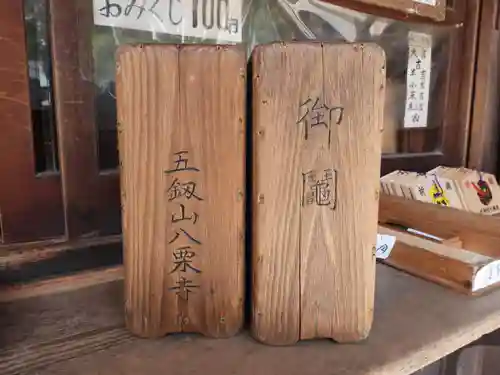 おみくじ 100円
御鬮
五釼山八栗寺